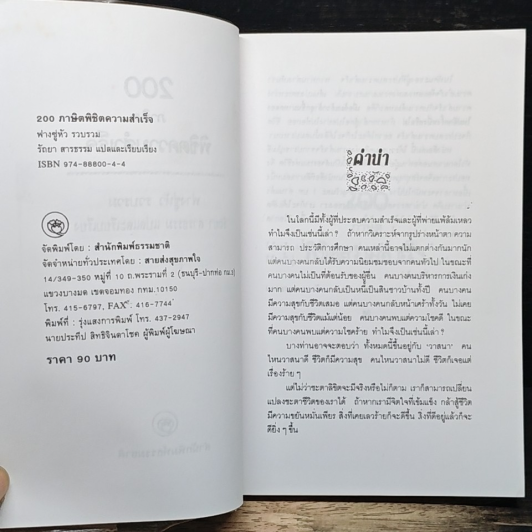 200 ภาษิตพิชิตความสำเร็จ
ฟางซูหัว รวบรวม
รัถยา สารธรรม แปลและเรียบเรียง
ISBN 974-88800-4-4
จัดพิมพ์โดย : สำนักพิมพ์ธรรมชาติ
จัดจำหน่ายทั่วประเทศโดย : สายส่งสุขภาพใจ
14/349-350 หมู่ที่ 10 ถ.พระรามที่ 2 (ธนบุรี-ปากท่อ กม.
แขวงบางมด เขตจอมทอง กทม.10150
โทร. 415-6797, FAX : 416-7744
พิมพ์ที่ : รุ่งแสงการพิมพ์ โทร. 437-2947
นายประทีป สิทธิจินดาโชค ผู้พิมพ์ผู้โฆษณา
ราคา 90 บาท
คำนำ
ในโลกนี้มีทั้งผู้ที่ประสบความสำเร็จและผู้ที่พ่ายแพ้ล้มเหลว
ทำไมจึงเป็นเช่นนี้เล่า? ถ้าหากวิเคราะห์จากรูปร่างหน้าตา ความ
สามารถ ประวัติการศึกษา คนเหล่านี้อาจไม่แตกต่างกันมากนัก
แต่คนบางคนกลับได้รับความนิยมชมชอบจากคนทั่วไป ในขณะที่
คนบางคนไม่เป็นที่ต้อนรับของผู้อื่น คนบางคนบริหารการเงินเก่ง
มาก แต่คนบางคนกลับเป็นหนี้เป็นสินชาวบ้านทั้งปี คนบางคน
มีความสุขกับชีวิตเสมอ แต่คนบางคนกลับหน้าเศร้าทั้งวัน ไม่เคย
มีความสุขกับชีวิตแม้แต่น้อย คนบางคนพบแต่ความโชคดี ในขณะ
ที่คนบางคนพบแต่ความโชคร้าย ทำไมจึงเป็นเช่นนี้เล่า?
บางท่านอาจจะตอบว่า ทั้งหมดนี้ขึ้นอยู่กับ 'วาสนา' คน
ไหนวาสนาดี ชีวิตก็มีความสุข คนไหนวาสนาไม่ดี ชีวิตก็เจอแต่
เรื่องร้าย ๆ
แต่ไม่ว่าชะตาลิขิตจะมีจริงหรือไม่ก็ตาม เราก็สามารถเปลี่ยน
แปลงชะตาชีวิตของเราได้ ถ้าหากเรามีจิตใจที่เข้มแข็ง กล้าสู้ชีวิต
มีความขยันหมั่นเพียร สิ่งที่เคยเลวร้ายก็จะดีขึ้น สิ่งที่ดีอยู่แล้วก็จะ
ดียิ่ง ๆ ขึ้น